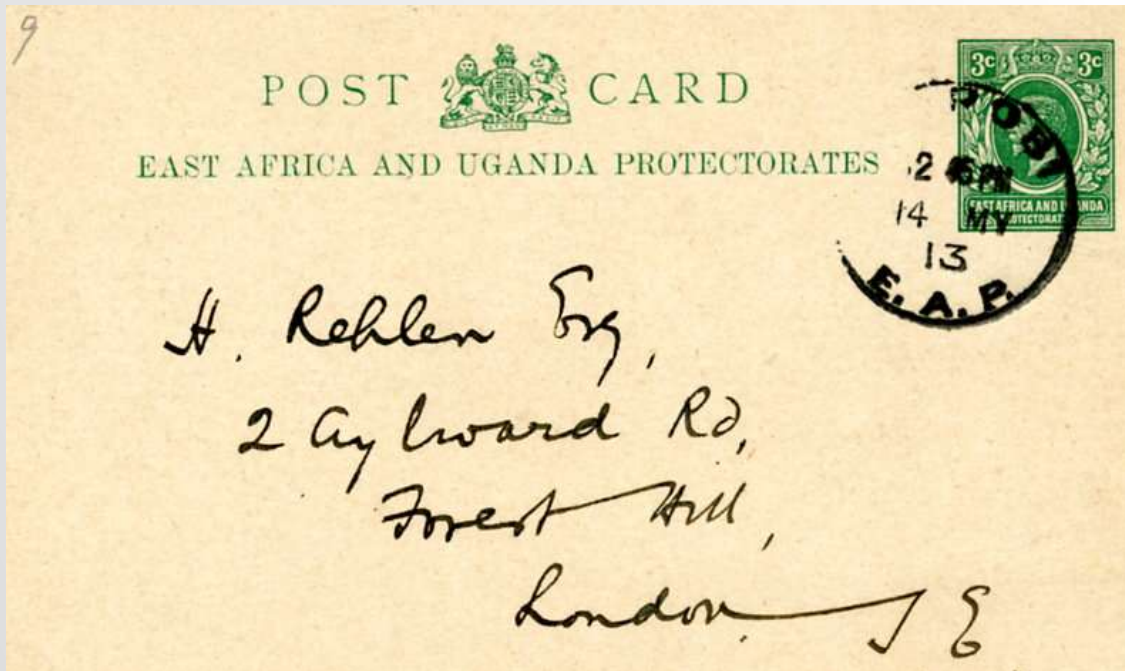 9
POST CARD
EAST AFRICA AND UGANDA PROTECTORATES
3c 3c
EAST AFRICA AND UGANDA
PROTECTORATES
ROBI
2 45 PM
14 MY
13
E. A. P.
H. Rehlen Esq,
2 Aylward Rd,
Forest Hill,
London S E